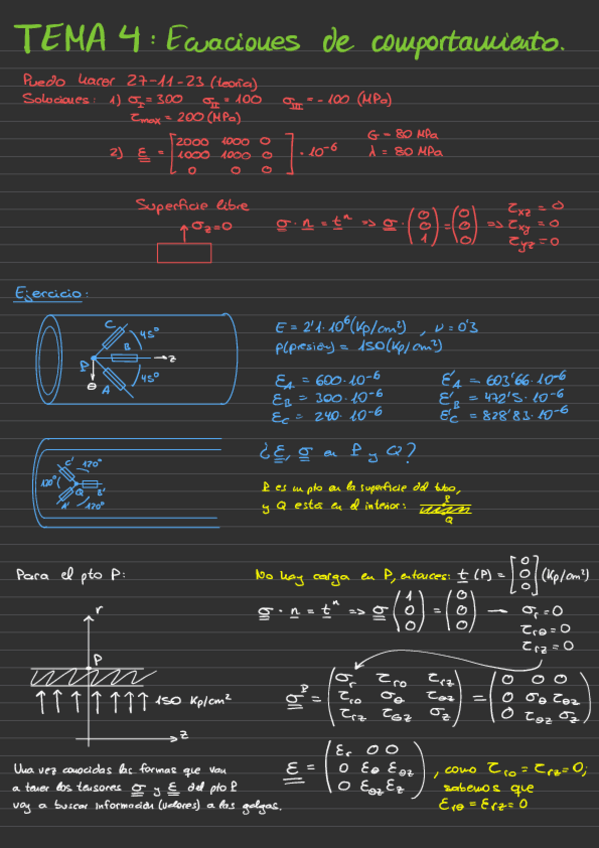 TEMA 4: Ecuaciones de comportamiento.
Puedo hacer 27-11-23 (teoría)
Soluciones: 1) σ_I = 300 σ_II = 100 σ_III = -100 (MPa)
τmax = 200 (MPa)
2) ε = [2000 1000 0
1000 1000 0
0 0 0] · 10^-6
G = 80 MPa
λ = 80 MPa
Superficie libre
σz = 0
σ · n = t^n => σ · (0 0 1) = (0 0 0) => τxz = 0
τxy = 0
τyz = 0
Ejercicio:
C 45º
B
P z
θ A 45º
E = 2'1·10^6 (Kp/cm²) , ν = 0'3
p(presión) = 150 (Kp/cm²)
εA = 600·10^-6 ε'A = 603'66·10^-6
εB = 300·10^-6 ε'B = 472'5·10^-6
εC = 240·10^-6 ε'C = 828'83·10^-6
C' 120º
120º Q B'
A' 120º
¿ε, σ en P y Q?
P es un pto en la superficie del tubo,
y Q está en el interior: P
Q
Para el pto P:
No hay carga en P, entonces: t (P) = [0 0 0] (Kp/cm²)
σ · n = t^n => σ (1 0 0) = (0 0 0) — σr = 0
τrθ = 0
τrz = 0
r
P
150 Kp/cm²
z
σ^P = (σr τrθ τrz
τrθ σθ τθz
τrz τθz σz) = (0 0 0
0 σθ τθz
0 τθz σz)
Una vez conocidas las formas que van
a tener los tensores σ y ε del pto P
voy a buscar información (valores) a las galgas.
ε = (εr 0 0
0 εθ εθz
0 εθz εz) , como τrθ = τrz = 0;
sabemos que
εrθ = εrz = 0